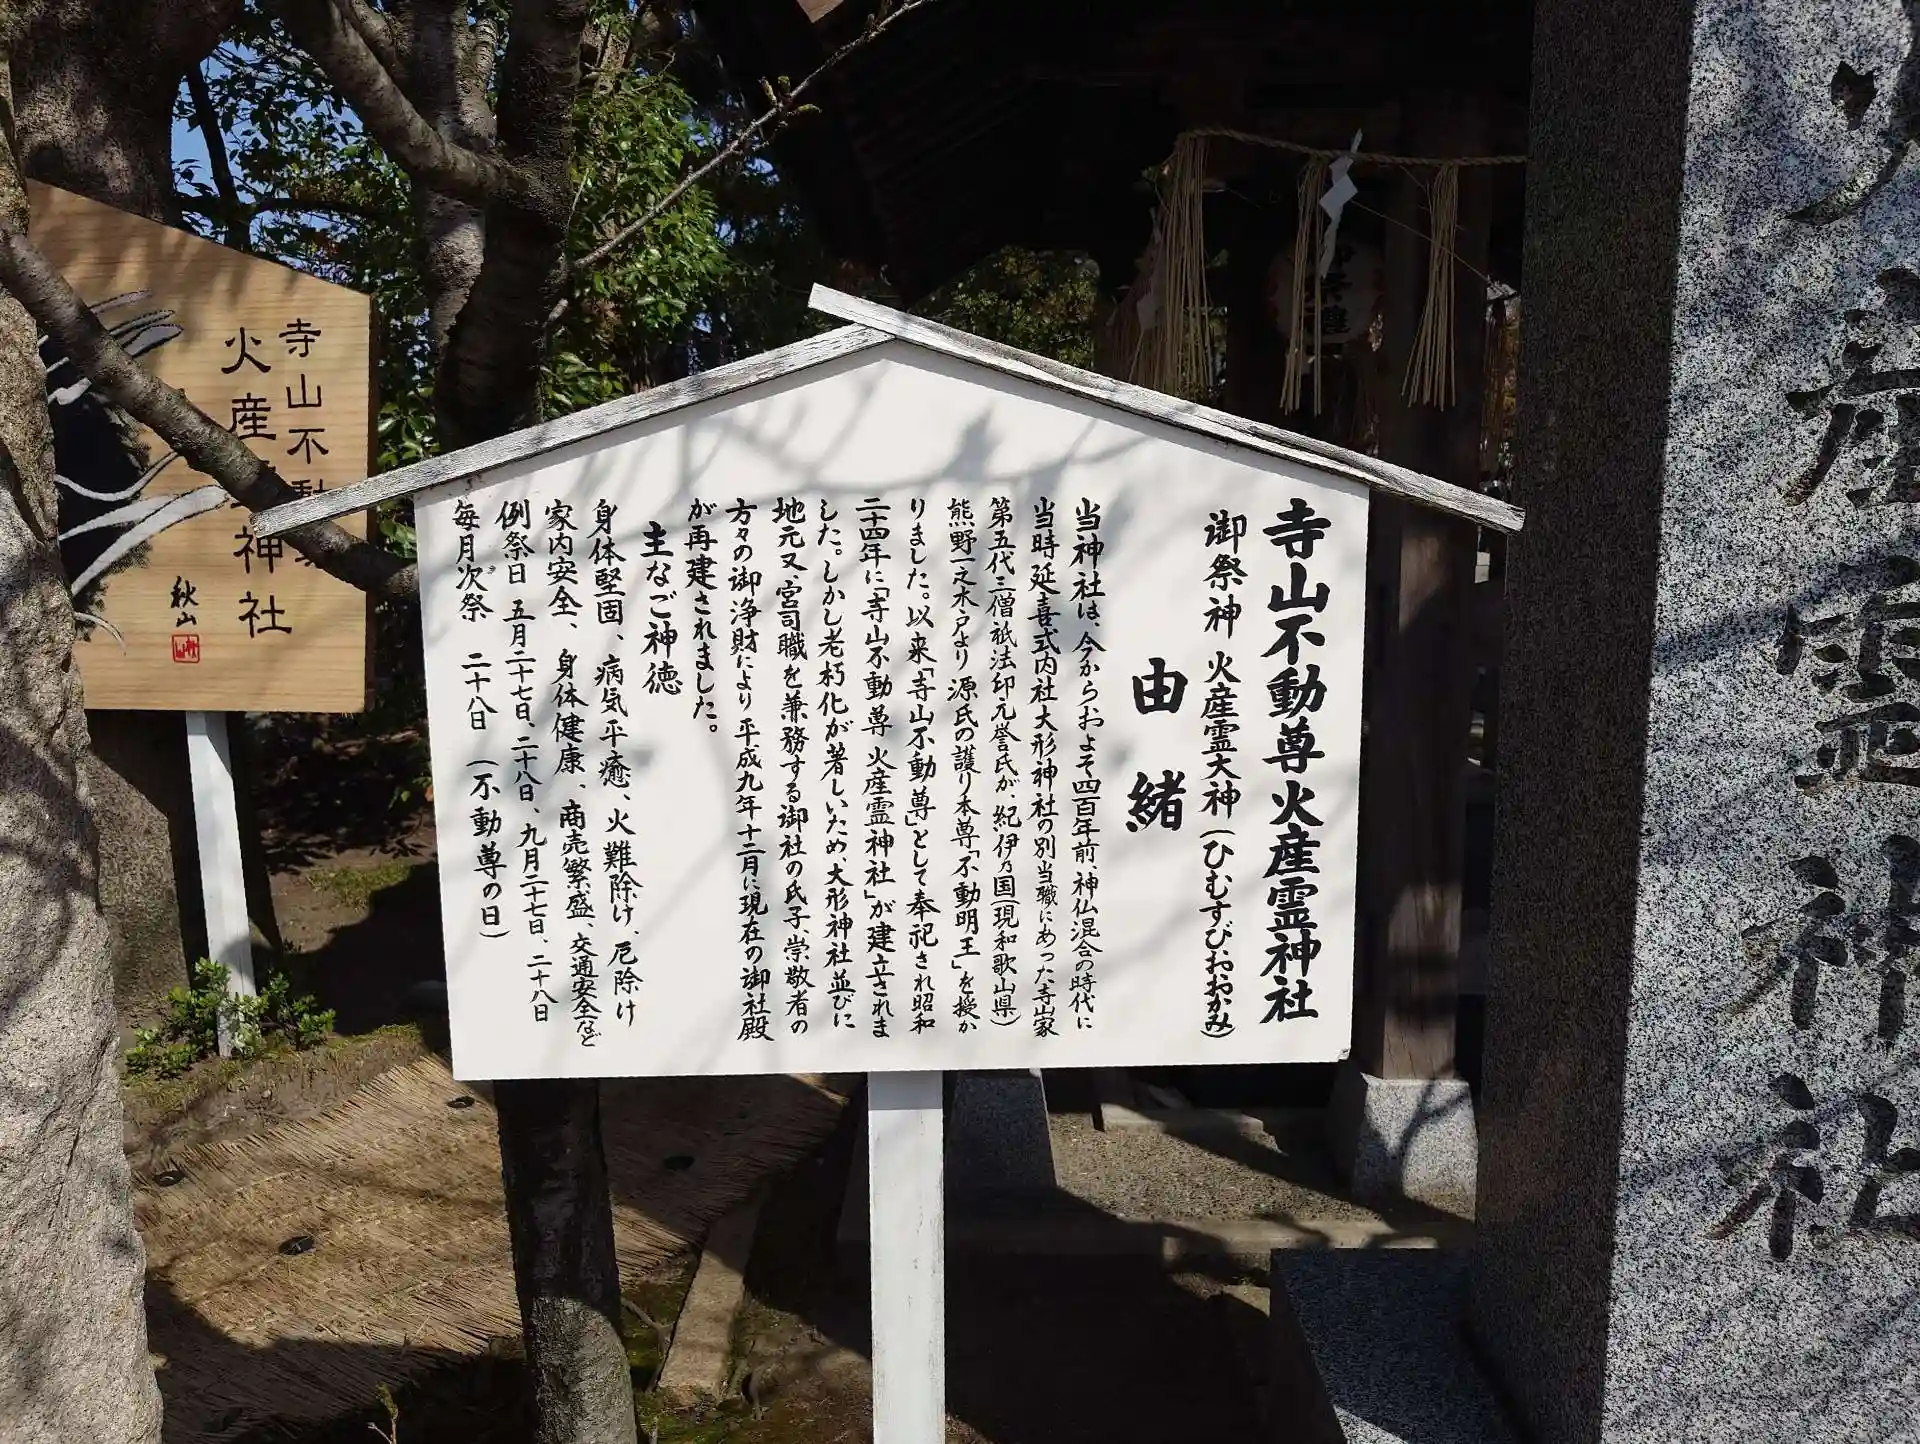 寺山不動尊火産霊神社
御祭神 火産霊大神(ひむすび、おおかみ)
由緒
当神社は、今からおよそ四百年前、神仏混合の時代に
当時延喜式内社大形神社の別当職にあった寺山家
第五代三僧祗法印元誉氏が、紀伊乃国(現和歌山県)
熊野一之木戸より源氏の護り本尊「不動明王」を授か
りました。以来「寺山不動尊」として奉祀され昭和
二十四年に「寺山不動尊 火産霊神社」が建立されま
した。しかし老朽化が著しいため、大形神社並びに
地元又、宮司職を兼務する御社の氏子、崇敬者の
方々の御浄財により平成九年十二月に現在の御社殿
が再建されました。
主なご神徳
身体堅固、病気平癒、火難除け、厄除け
家内安全、身体健康、商売繁盛、交通安全など
例祭日 五月二十七日、二十八日、九月二十七日、二十八日
毎月次祭 二十八日 (不動尊の日)
寺山不動
火産 神社
秋山
産霊神社